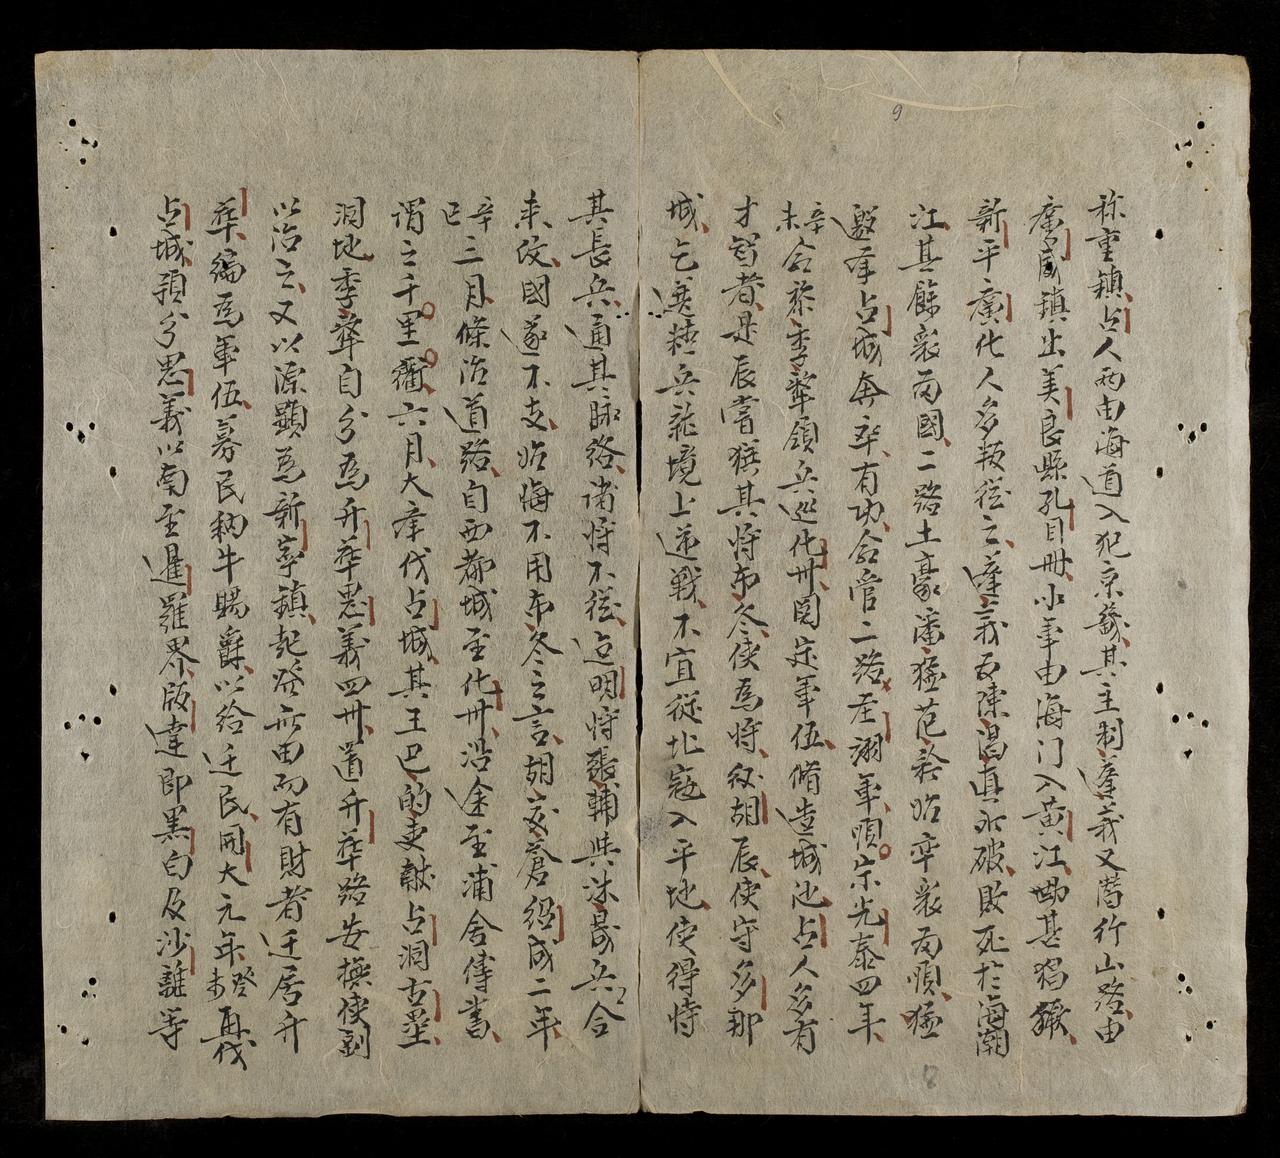 9
称重鎮占人兩由海道入犯京畿其主制蓬義又嘗行山路由
廣威鎮出美良縣孔目冊小軍由海门入黄江勘甚猖獗
新平廣化人多叛從之蓬義爲陳渴真所破敗死於海潮
江其餘衆兩國二路土豪潘猛范於昭牽衆而順猛
邀奪占城奔卒有功令管二路左翊軍順宗光泰四年
辛未令黎季犛領兵巡化州閲定軍伍脩造城池占人多有
才智者是辰嘗獲其將布冬使爲將從胡辰使守多那
城乞選精兵就境上逆戰不宜從北寇入平地使得恃
其長兵通其脉絡諸將不從迨明將張輔與沐晟兵合
来伐國遂不支始悔不用布冬之言胡交蒼紹成二年
辛巳三月條治道路自西都城至化州沿途至浦舍傳書
谓之千里衢六月大奉伐占城其王巴的吏献占洞古壘
洞地季犛自分爲升華思義四州道升華路安撫使副
以治之又以源顯爲新寧鎮起發所由而有財者迁居升
華編爲軍伍募民納牛賜爵以给迁民開大元年癸未再伐
占城預分思義以南至暹羅界版達即黑白及沙誰等
8